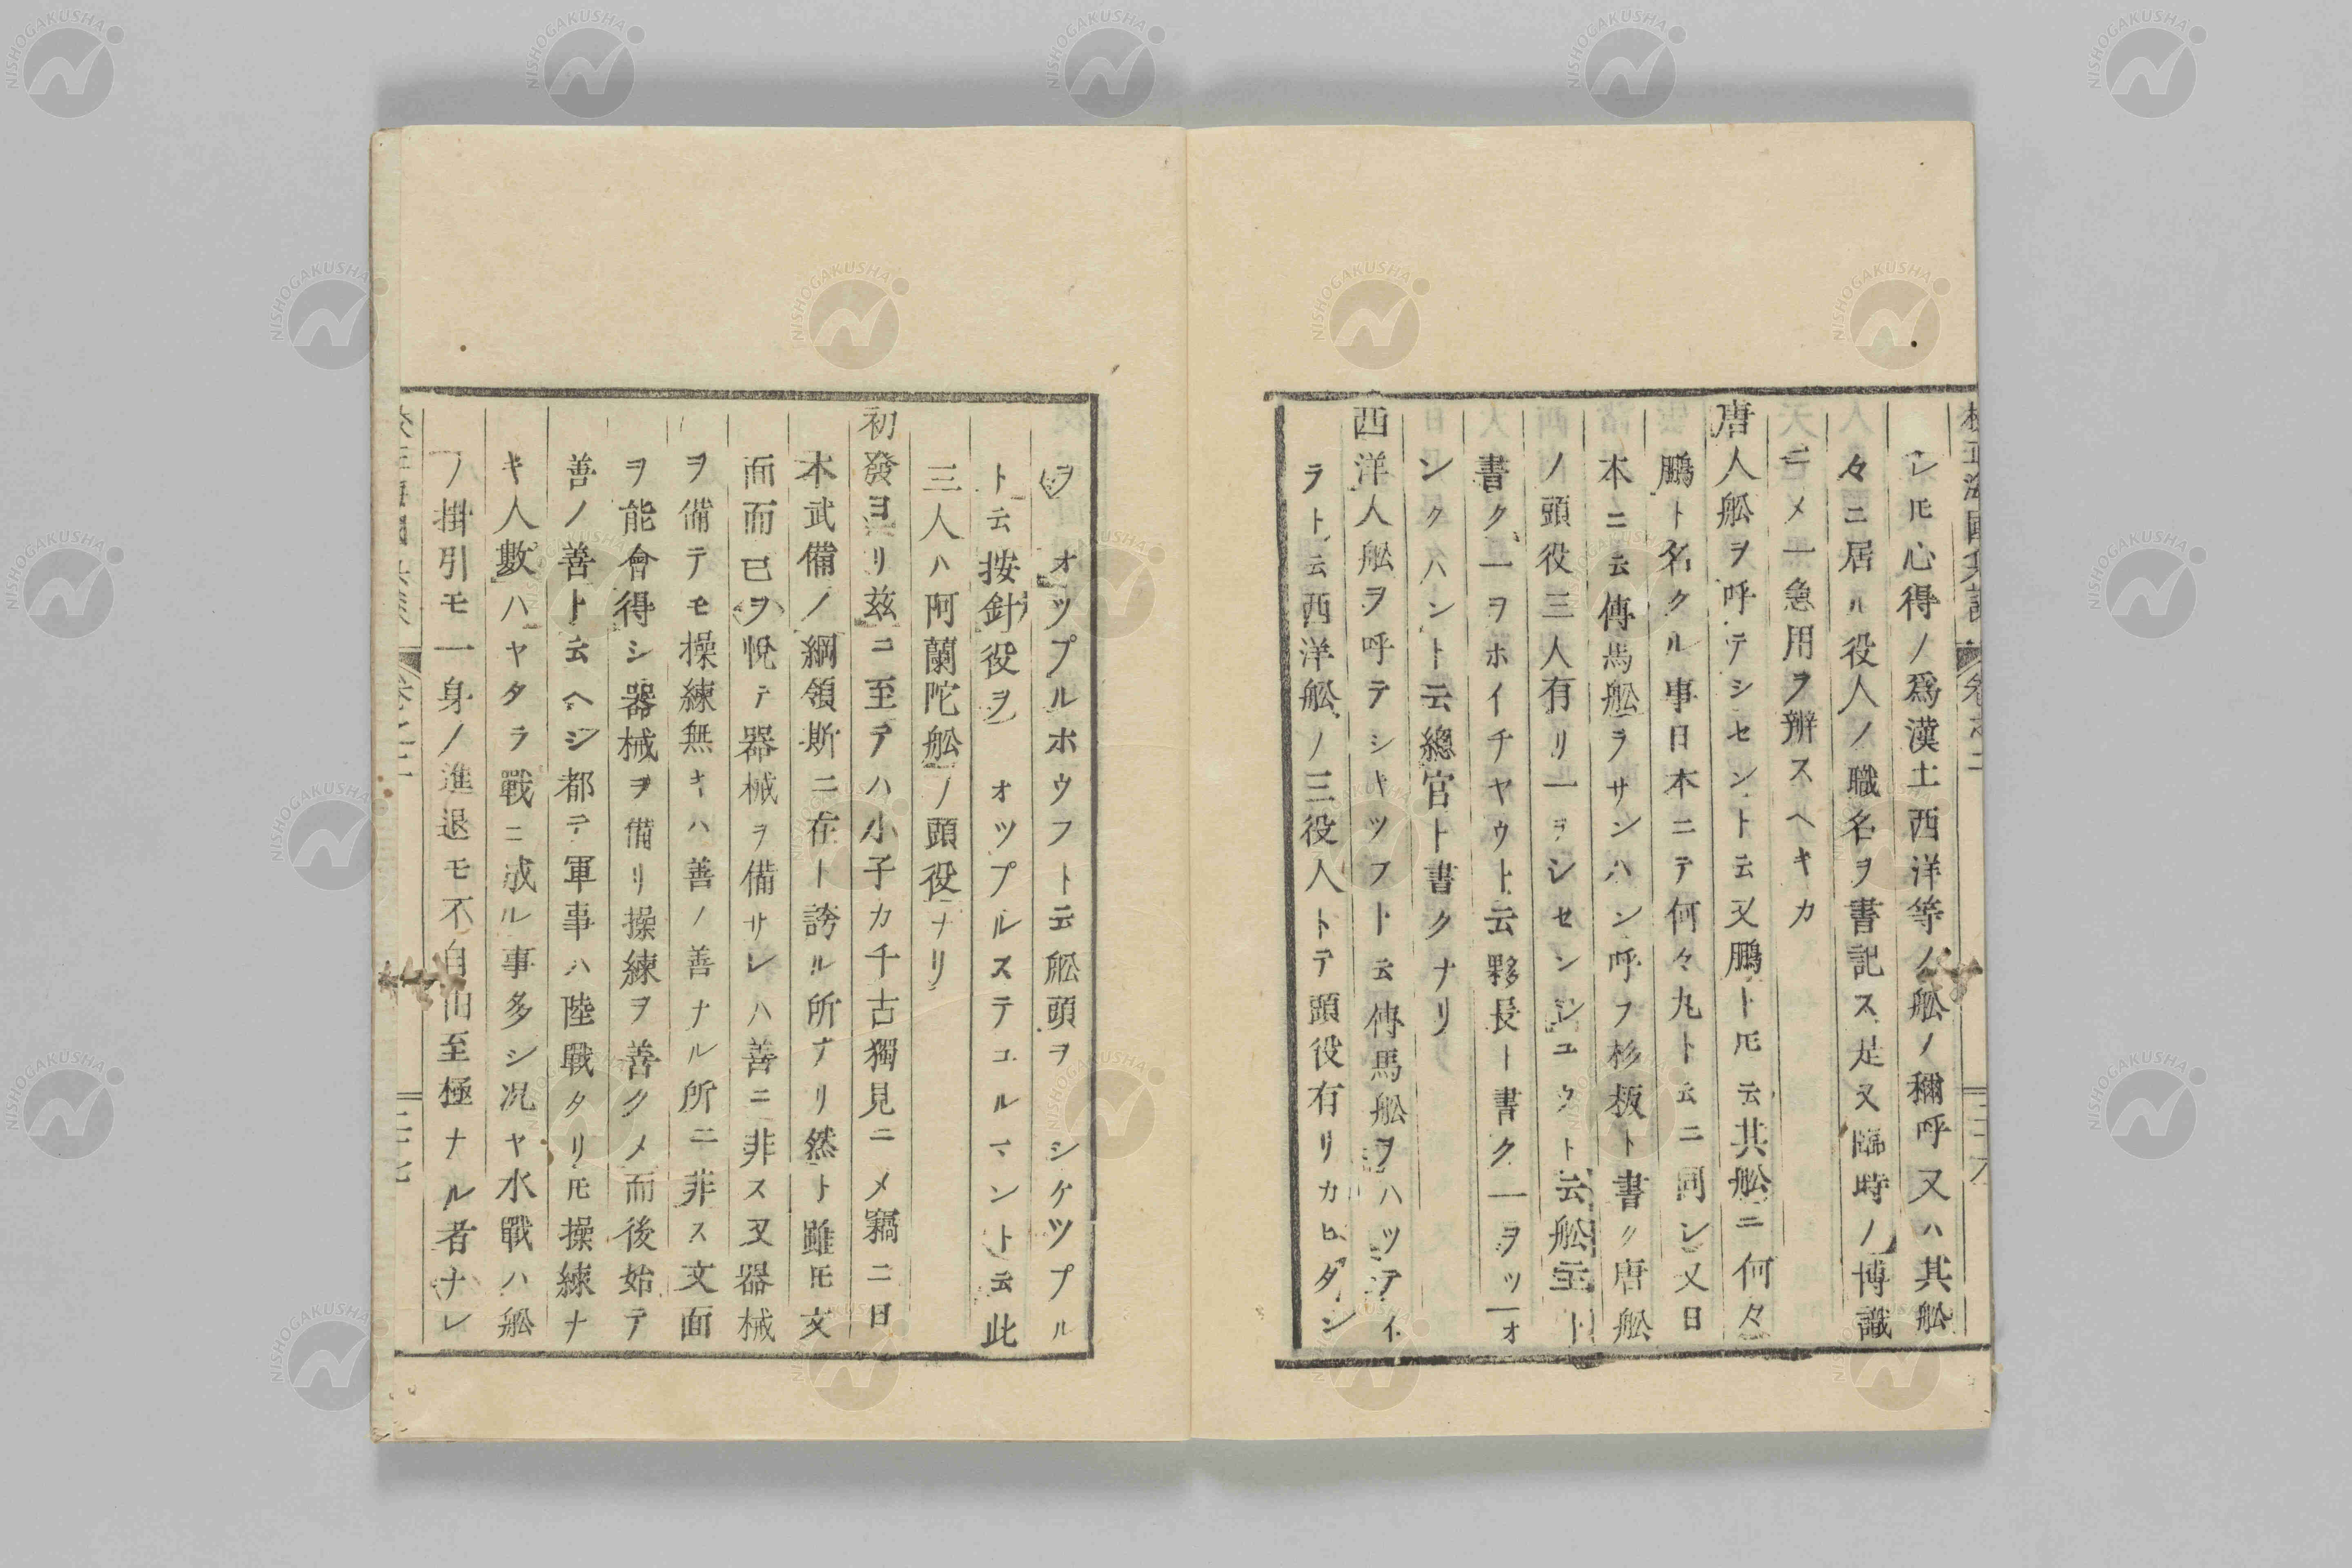 レ𪜈心得ノ爲漢土西洋等ノ舩ノ稱呼又ハ其舩
々ニ居ル役人ノ職名ヲ書記ス是又臨時ノ博識
ニメ一急用ヲ辨スヘキカ
唐人舩ヲ呼テシセント云又鵬ト𪜈云其舩ニ何々
鵬ト名クル事日本ニテ何々丸ト云ニ同シ又日
本ニ云傳馬舩ヲサンハン呼フ杉板ト書ク唐舩
ノ頭役三人有リ一ヲシセンシユクト云舩主ト
書ク一ヲホイチヤウト云夥長ト書ク一ヲツーオ
ンクハントニ云總官ト書クナリ
西洋人舩ヲ呼テシキツフト云傳馬舩ヲハツテイ
ラト云西洋舩ノ三役人トテ頭役有リカヒダン
ヲ オツプルホウフト云舩頭ヲ シケツプル
ト云按針役ヲ オツプルステユルマント云此
三人ハ阿蘭陀舩ノ頭役ナリ
初發ヨリ茲ニ至テハ小子カ千古獨見ニメ竊ニ日
本武備ノ綱領斯ニ在ト誇ル所ナリ然ト雖𪜈文
面而已ヲ悅テ器械ヲ備サレハ善ニ非ス又器械
ヲ備テモ操練無キハ善ノ善ナル所ニ非ス文面
ヲ能會得シ器械ヲ備リ操練ヲ善クメ而後始テ
善ノ善ト云ヘシ都テ軍事ハ陸戰タリ𪜈操練ナ
キ人數ハヤタラ戰ニ成ル事多シ况ヤ水戰ハ舩
ノ掛引モ一身ノ進退モ不自由至極ナル者ナレ